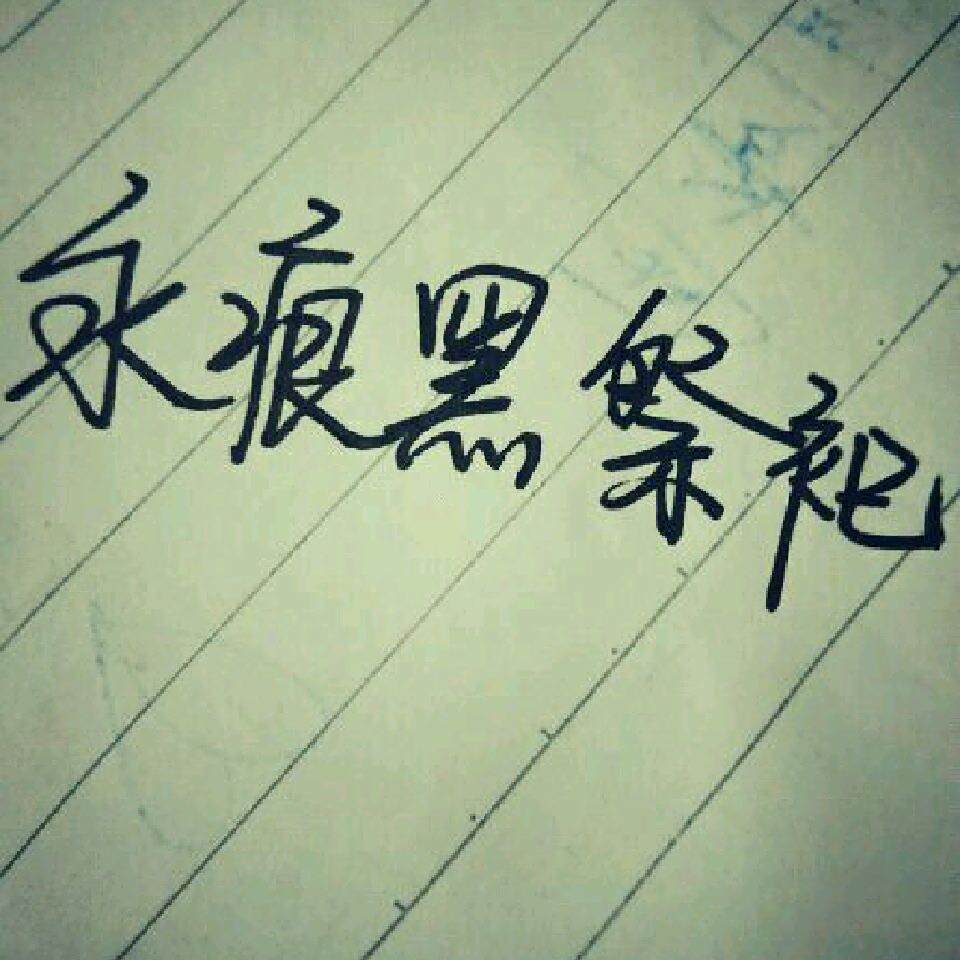 永痕黑祭祀